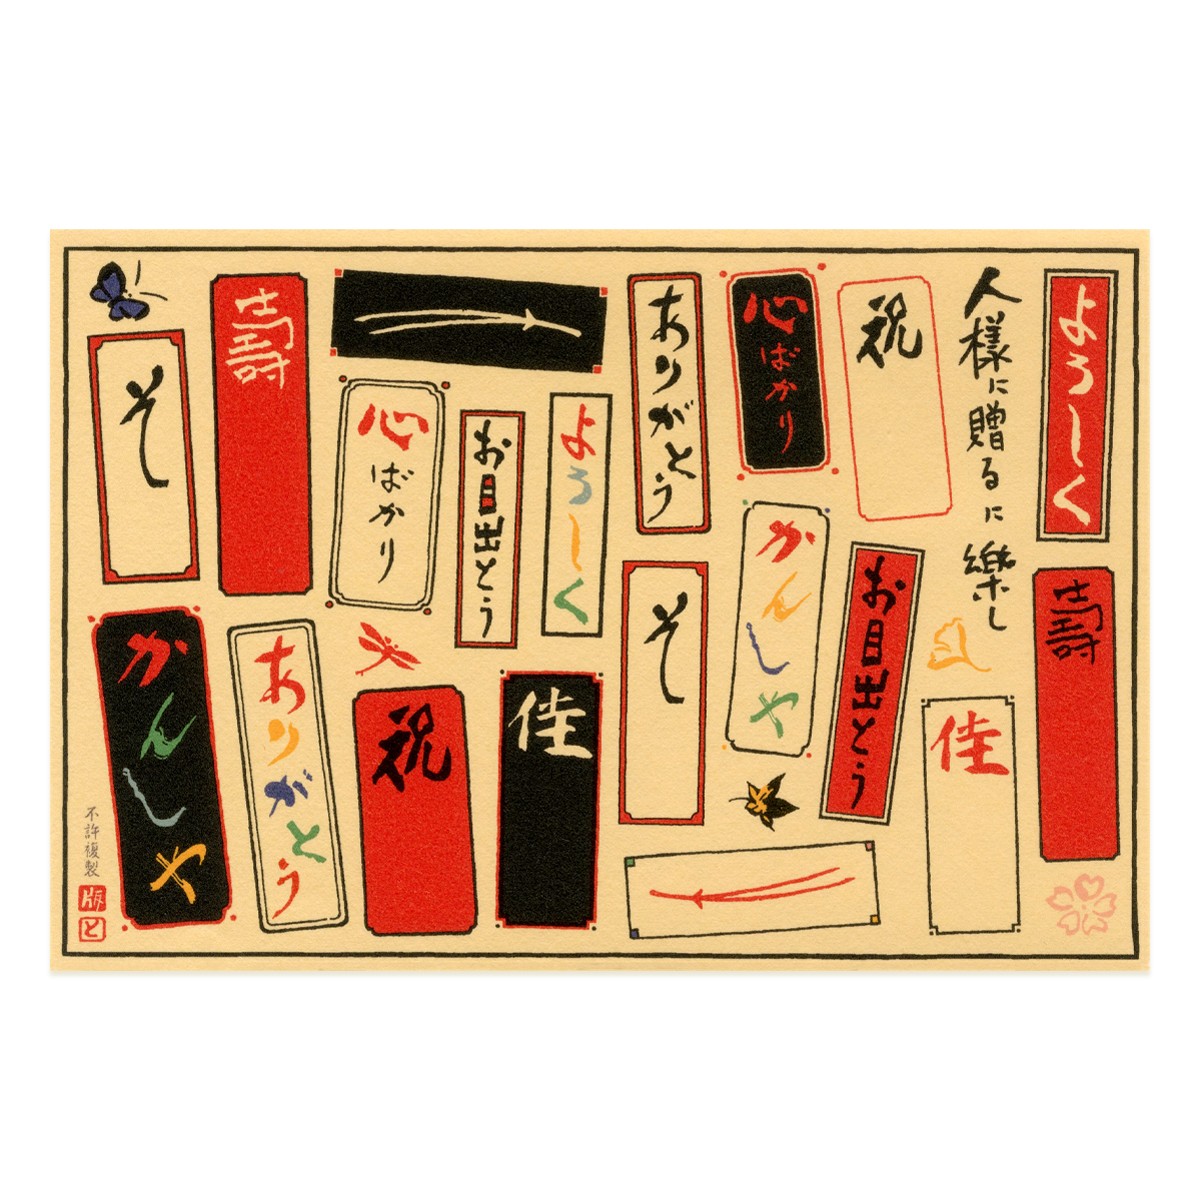 よろしく
壽
人様に贈るに樂し
祝
佳
心ばかり
お目出とう
かんしゃ
ありがとう
そし
よろしく
お目出とう
佳
心ばかり
祝
壽
ありがとう
そし
かんしゃ
不許複製
版
と